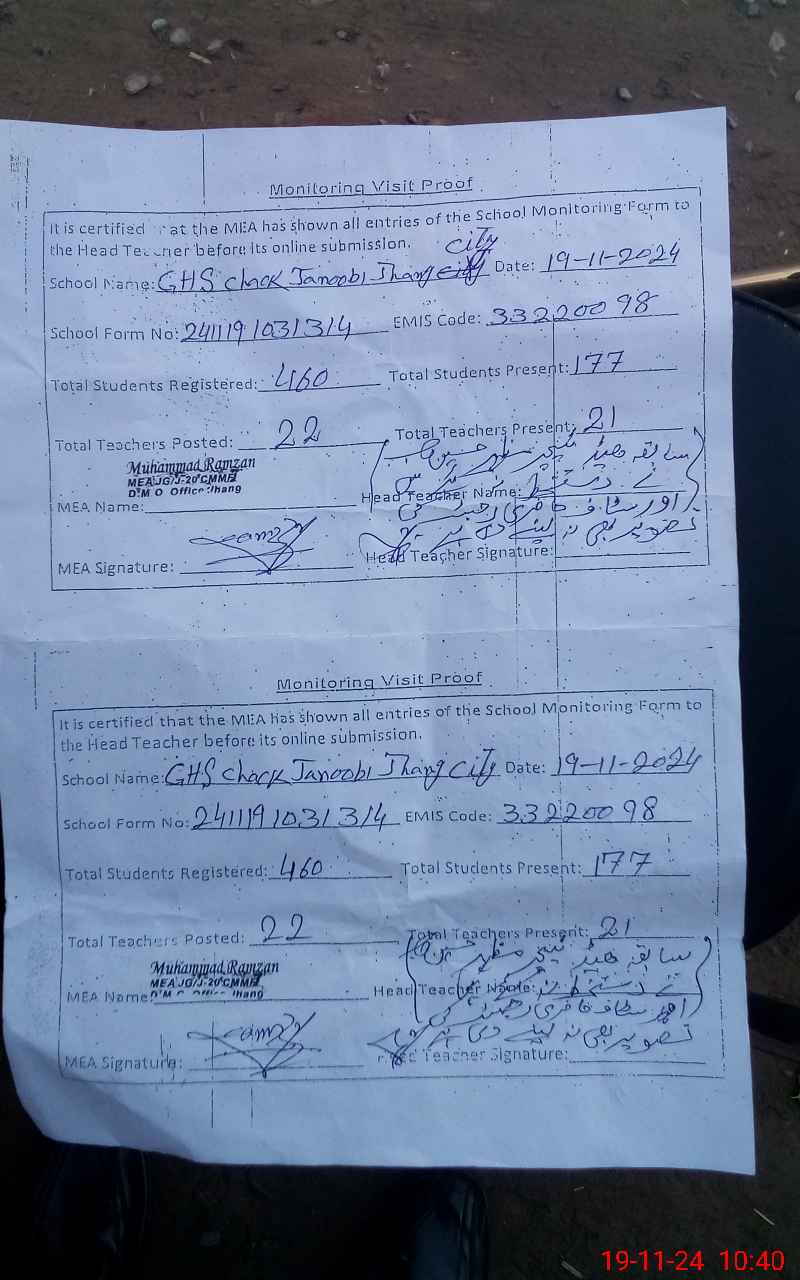 Monitoring Visit Proof
It is certified at the MEA has shown all entries of the School Monitoring Form to
the Head Teacher before its online submission.
city
School Name: GHS chack Janoobi Jhang Date: 19-11-2024
School Form No: 2411191031314 EMIS Code: 33220098
Total Students Registered: 460 Total Students Present: 177
Total Teachers Posted: 22 Total Teachers Present: 21
سابقہ ھیڈ ٹیچر مظہر حسین
Muhammad Ramzan
MEA JG/J-20 CMMF
D.M.O Office Jhang
نے دستخط
MEA Name: Head Teacher Name:
اور سٹاف حاضری رجسٹر کی
تصویر بھی نہ لینے دی ہے
MEA Signature: Head Teacher Signature:
Monitoring Visit Proof
It is certified that the MEA has shown all entries of the School Monitoring Form to
the Head Teacher before its online submission.
School Name: GHS chack Janoobi Jhang City Date: 19-11-2024
School Form No: 2411191031314 EMIS Code: 33220098
Total Students Registered: 460 Total Students Present: 177
Total Teachers Posted: 22 Total Teachers Present: 21
سابقہ ھیڈ ٹیچر مظہر حسین
Muhammad Ramzan
MEA JG/J-20 CMMF
Office Jhang
نے دستخط
MEA Name: Head Teacher Name:
اور سٹاف حاضری رجسٹر کی
تصویر بھی نہ لینے دی ہے
MEA Signature: Head Teacher Signature:
19-11-24 10:40